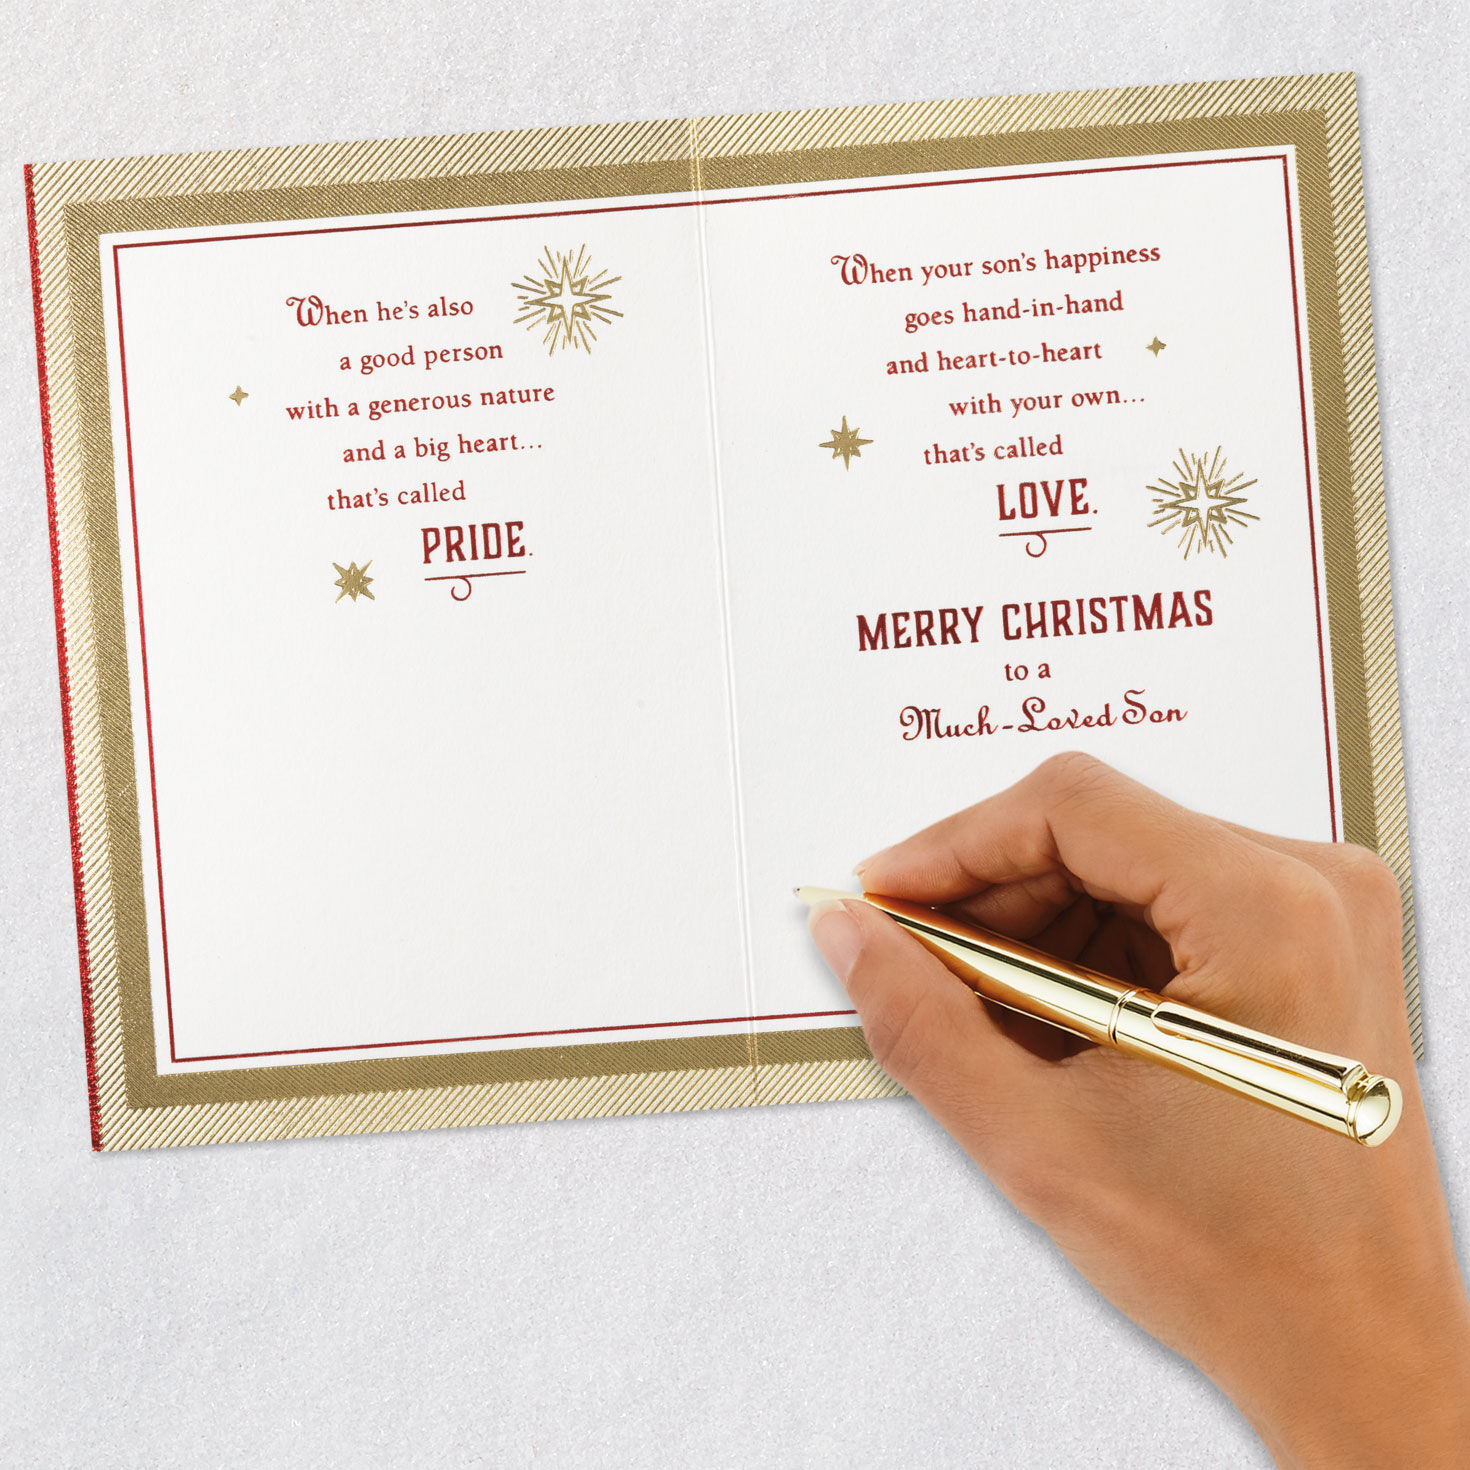 When he's also
a good person
with a generous nature
and a big heart...
that's called
PRIDE.
When your son's happiness
goes hand-in-hand
and heart-to-heart
with your own...
that's called
LOVE.
MERRY CHRISTMAS
to a
Much-Loved Son